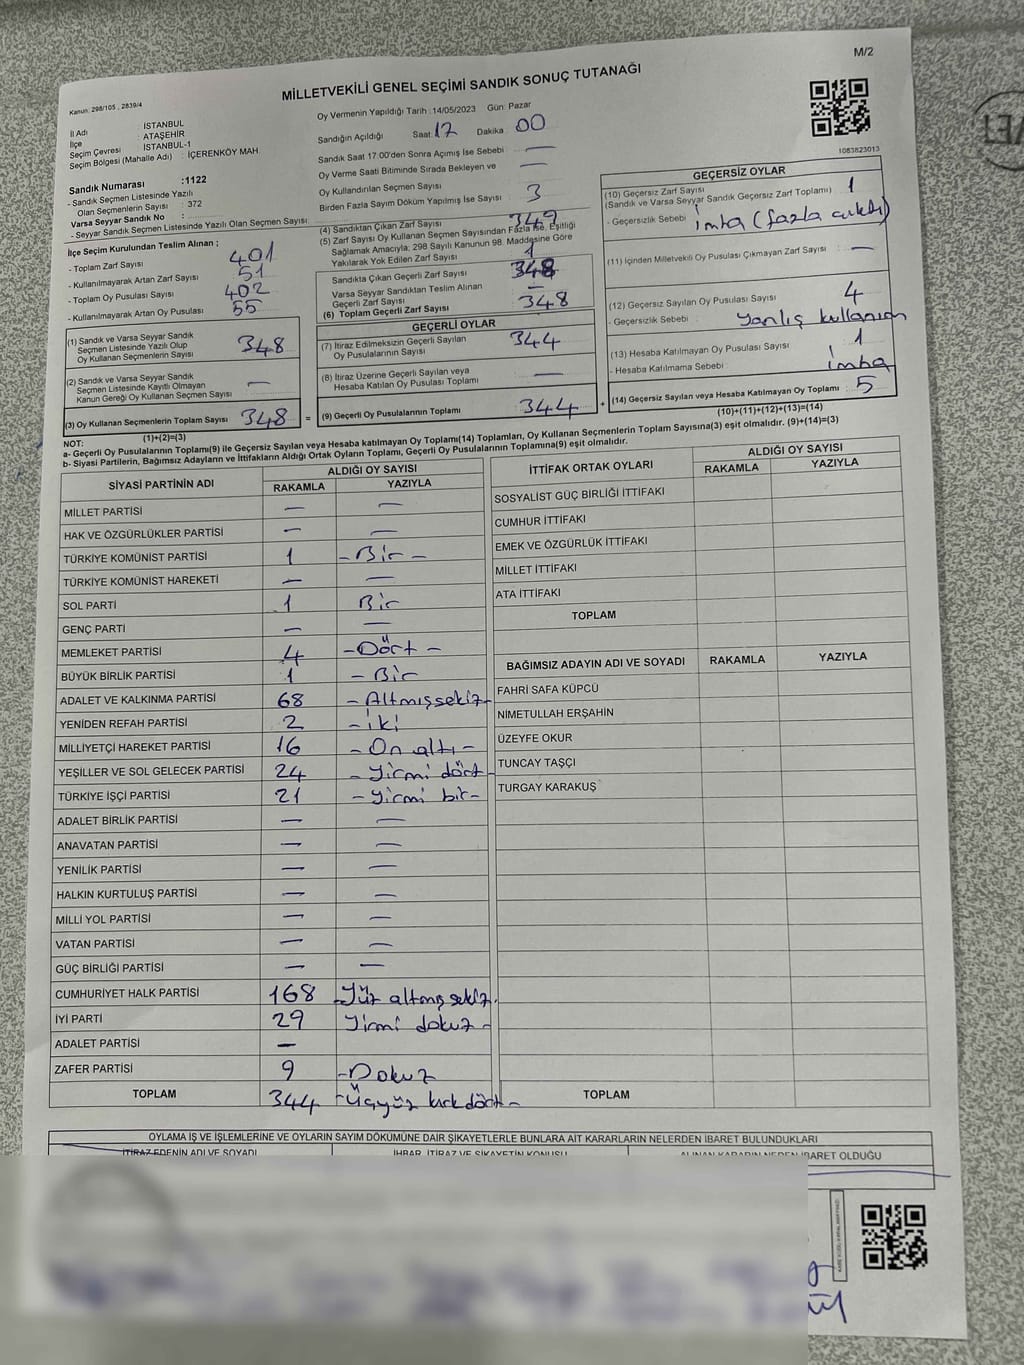 M/2
MİLLETVEKİLİ GENEL SEÇİMİ SANDIK SONUÇ TUTANAĞI
Kanun: 298/105 , 2839/4
İl Adı : İSTANBUL
İlçe : ATAŞEHİR
Seçim Çevresi : İSTANBUL-1
Seçim Bölgesi (Mahalle Adı) : İÇERENKÖY MAH.
Sandık Numarası :1122
- Sandık Seçmen Listesinde Yazılı
Olan Seçmenlerin Sayısı : 372
Varsa Seyyar Sandık No :
- Seyyar Sandık Seçmen Listesinde Yazılı Olan Seçmen Sayısı :
Oy Vermenin Yapıldığı Tarih :14/05/2023 Gün: Pazar
Sandığın Açıldığı Saat: 17 Dakika : 00
Sandık Saat 17:00'den Sonra Açılmış İse Sebebi : —
Oy Verme Saati Bitiminde Sırada Bekleyen ve
Oy Kullandırılan Seçmen Sayısı : —
Birden Fazla Sayım Döküm Yapılmış İse Sayısı : 3
1083823013
İlçe Seçim Kurulundan Teslim Alınan ;
- Toplam Zarf Sayısı : 401
- Kullanılmayarak Artan Zarf Sayısı : 51
- Toplam Oy Pusulası Sayısı : 402
- Kullanılmayarak Artan Oy Pusulası : 55
(1) Sandık ve Varsa Seyyar Sandık
Seçmen Listesinde Yazılı Olup
Oy Kullanan Seçmenlerin Sayısı : 348
(2) Sandık ve Varsa Seyyar Sandık
Seçmen Listesinde Kayıtlı Olmayan
Kanun Gereği Oy Kullanan Seçmen Sayısı : —
(3) Oy Kullanan Seçmenlerin Toplam Sayısı : 348 =
(1)+(2)=(3)
(4) Sandıktan Çıkan Zarf Sayısı : 349
(5) Zarf Sayısı Oy Kullanan Seçmen Sayısından Fazla İse, Eşitliği
Sağlamak Amacıyla; 298 Sayılı Kanunun 98. Maddesine Göre
Yakılarak Yok Edilen Zarf Sayısı : 1
Sandıkta Çıkan Geçerli Zarf Sayısı : 348
Varsa Seyyar Sandıktan Teslim Alınan
Geçerli Zarf Sayısı : —
(6) Toplam Geçerli Zarf Sayısı : 348
GEÇERLİ OYLAR
(7) İtiraz Edilmeksizin Geçerli Sayılan
Oy Pusulalarının Sayısı : 344
(8) İtiraz Üzerine Geçerli Sayılan veya
Hesaba Katılan Oy Pusulası Toplamı : —
(9) Geçerli Oy Pusulalarının Toplamı : 344 +
GEÇERSİZ OYLAR
(10) Geçersiz Zarf Sayısı
(Sandık ve Varsa Seyyar Sandık Geçersiz Zarf Toplamı) : 1
- Geçersizlik Sebebi : imha (fazla çıktı)
(11) İçinden Milletvekili Oy Pusulası Çıkmayan Zarf Sayısı : —
(12) Geçersiz Sayılan Oy Pusulası Sayısı : 4
- Geçersizlik Sebebi : Yanlış kullanım
(13) Hesaba Katılmayan Oy Pusulası Sayısı : 1
- Hesaba Katılmama Sebebi : imha
(14) Geçersiz Sayılan veya Hesaba Katılmayan Oy Toplamı : 5
(10)+(11)+(12)+(13)=(14)
NOT:
a- Geçerli Oy Pusulalarının Toplamı(9) ile Geçersiz Sayılan veya Hesaba katılmayan Oy Toplamı(14) Toplamları, Oy Kullanan Seçmenlerin Toplam Sayısına(3) eşit olmalıdır. (9)+(14)=(3)
b- Siyasi Partilerin, Bağımsız Adayların ve İttifakların Aldığı Ortak Oyların Toplamı, Geçerli Oy Pusulalarının Toplamına(9) eşit olmalıdır.
SİYASİ PARTİNİN ADI ALDIĞI OY SAYISI
RAKAMLA YAZIYLA
MİLLET PARTİSİ — —
HAK VE ÖZGÜRLÜKLER PARTİSİ — —
TÜRKİYE KOMÜNİST PARTİSİ 1 - Bir -
TÜRKİYE KOMÜNİST HAREKETİ — —
SOL PARTİ 1 Bir
GENÇ PARTİ — —
MEMLEKET PARTİSİ 4 - Dört -
BÜYÜK BİRLİK PARTİSİ 1 - Bir
ADALET VE KALKINMA PARTİSİ 68 - Altmışsekiz-
YENİDEN REFAH PARTİSİ 2 - iki
MİLLİYETÇİ HAREKET PARTİSİ 16 - On altı -
YEŞİLLER VE SOL GELECEK PARTİSİ 24 - Yirmi dört -
TÜRKİYE İŞÇİ PARTİSİ 21 - Yirmi bir -
ADALET BİRLİK PARTİSİ — —
ANAVATAN PARTİSİ — —
YENİLİK PARTİSİ — —
HALKIN KURTULUŞ PARTİSİ — —
MİLLİ YOL PARTİSİ — —
VATAN PARTİSİ — —
GÜÇ BİRLİĞİ PARTİSİ — —
CUMHURİYET HALK PARTİSİ 168 - Yüz altmış sekiz.
İYİ PARTİ 29 Yirmi dokuz -
ADALET PARTİSİ —
ZAFER PARTİSİ 9 - Dokuz
TOPLAM 344 - Üçyüz kırkdört -
İTTİFAK ORTAK OYLARI ALDIĞI OY SAYISI
RAKAMLA YAZIYLA
SOSYALİST GÜÇ BİRLİĞİ İTTİFAKI
CUMHUR İTTİFAKI
EMEK VE ÖZGÜRLÜK İTTİFAKI
MİLLET İTTİFAKI
ATA İTTİFAKI
TOPLAM
BAĞIMSIZ ADAYIN ADI VE SOYADI RAKAMLA YAZIYLA
FAHRİ SAFA KÜPCÜ
NİMETULLAH ERŞAHİN
ÜZEYFE OKUR
TUNCAY TAŞÇI
TURGAY KARAKUŞ
TOPLAM
OYLAMA İŞ VE İŞLEMLERİNE VE OYLARIN SAYIM DÖKÜMÜNE DAİR ŞİKAYETLERLE BUNLARA AİT KARARLARIN NELERDEN İBARET BULUNDUKLARI
İTİRAZ EDENİN ADI VE SOYADI İHBAR, İTİRAZ VE ŞİKAYETİN KONUSU ALINAN KARARIN NEDEN İBARET OLDUĞU